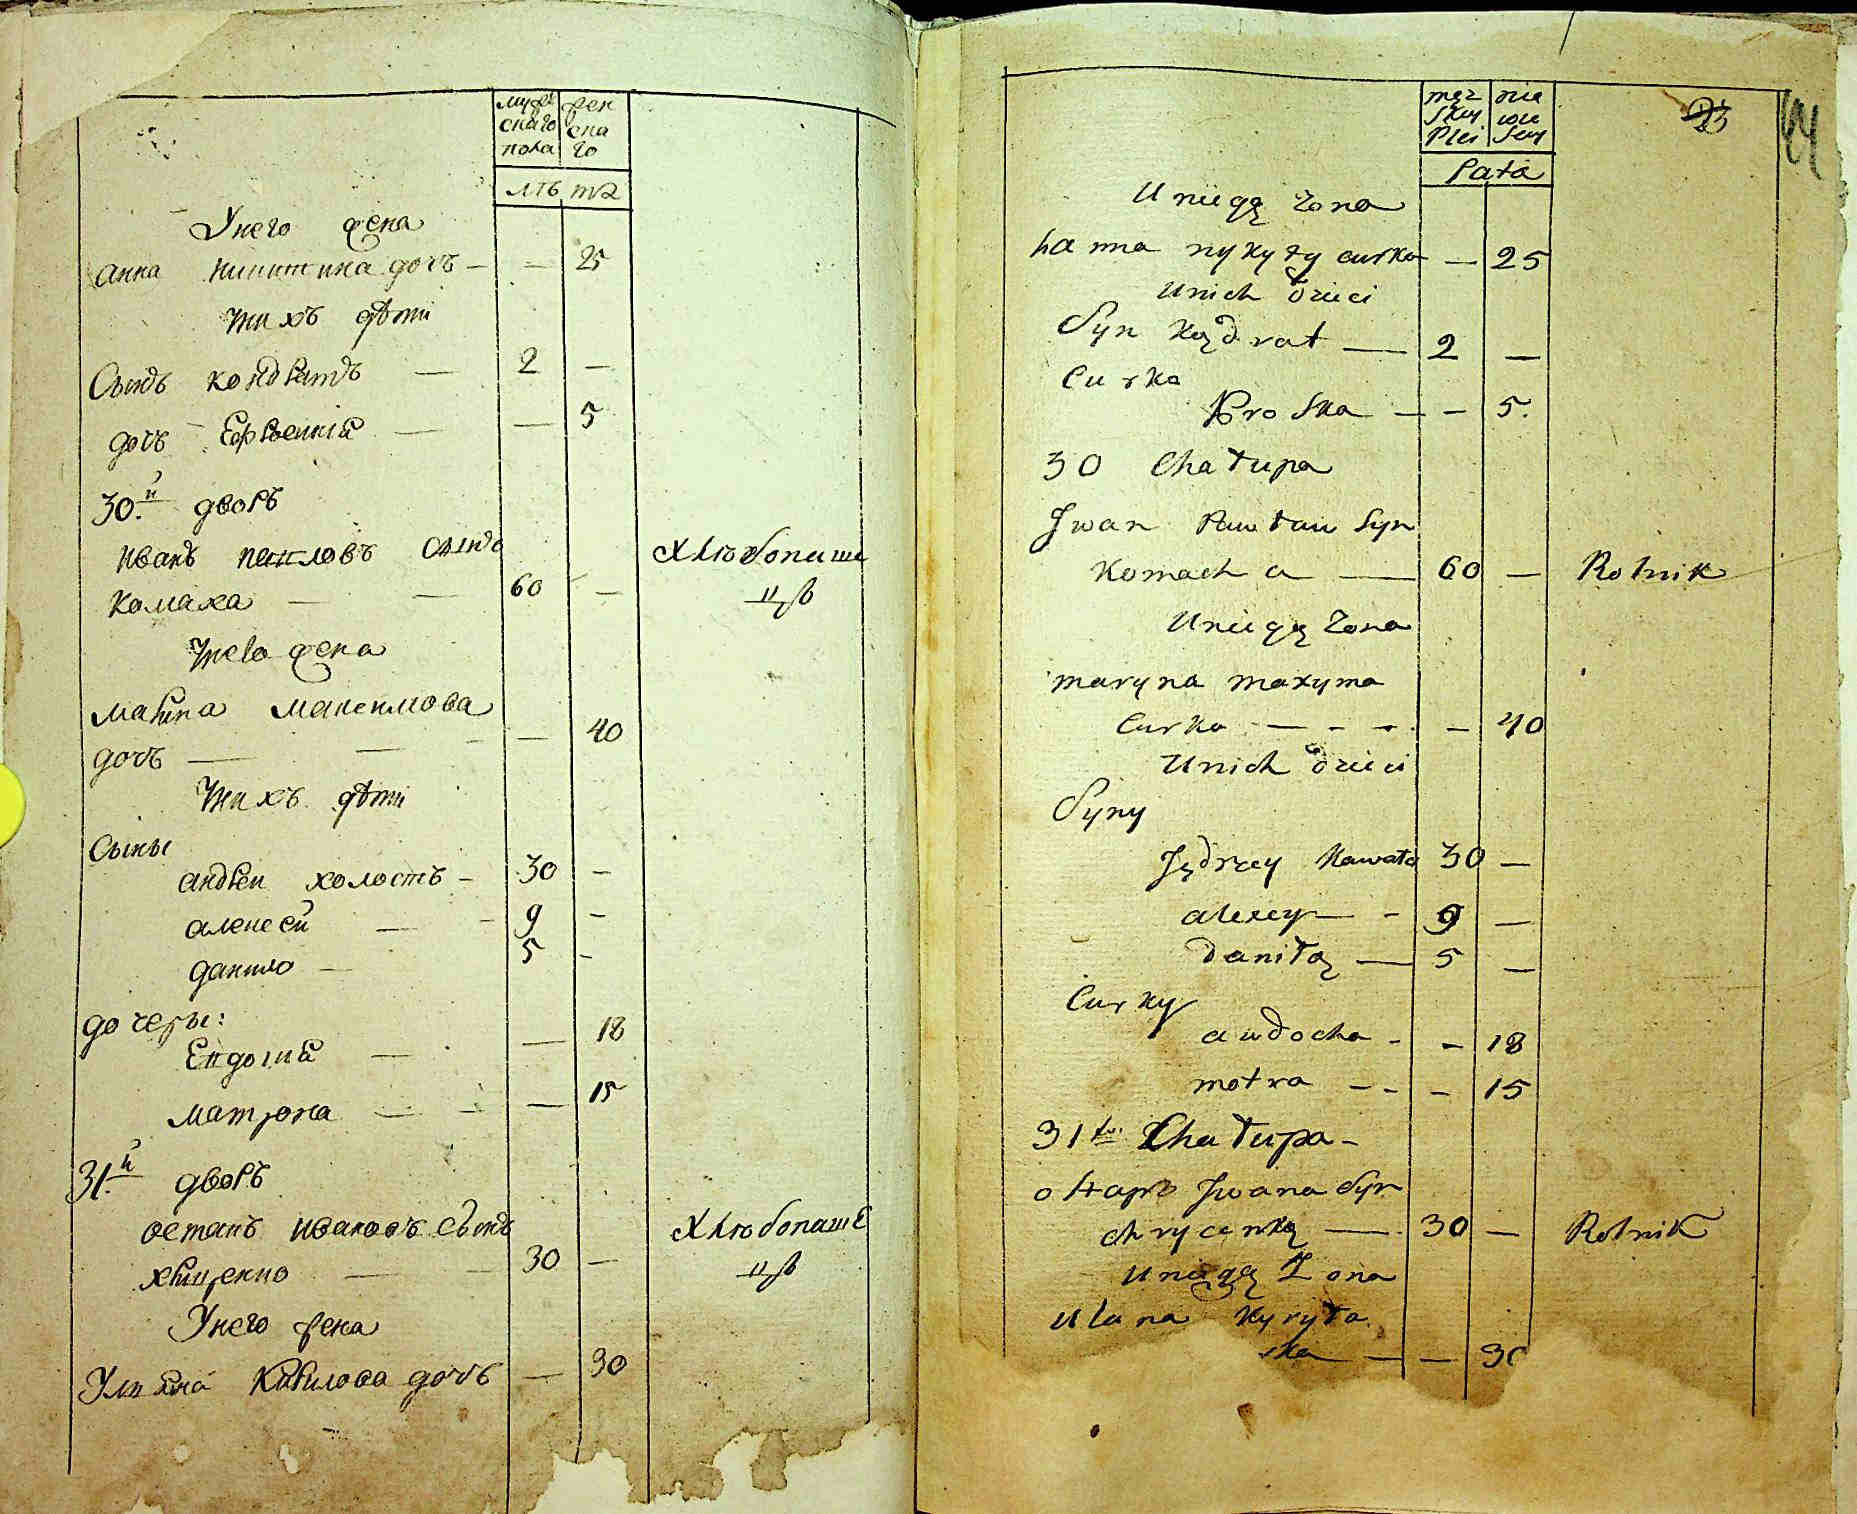 мужескаго пола
женскаго
лѣта
Унего жена
анна никитина дочь — — 25
Унихъ дѣти
Сынъ кондратъ — 2 —
дочь Ефросинія — — 5
30.й дворъ
иванъ павловъ сынъ хлѣбопаше
комаха — — 60 — цъ
Унего жена
марина максимова
дочь — — — — 40
Унихъ дѣти
Сыны
андреи холостъ — 30 —
алексей — — 9 —
данило — 5 —
дочеры:
Евдокія — — 18
матрона — — — 15
31.й дворъ
остапъ ивановъ сынъ хлѣбопаше
хриценко — — 30 — цъ
Унего жена
Уліяна Кирилова дочь — 30
męz skey Płci
nie wie sciey
Lata
23
U niegę zona
hanna nykyty curka — 25
Unich dzieci
Syn Kędrat — 2 —
Curka
Proska — — 5.
30 Chałupa
Jwan Pawłau Syn
Komacha — 60 — Rolnik
Uniegę zona
maryna maxyma
Curka — — — — 40
Unich dzieci
Syny
Jędrzey Kawale 30 —
alexey — — 9 —
daniłę — 5 —
Curky
awdocha — — 18
motra — — — 15
31 Chałupa —
ostap Jwana Syn
chrycenkę — 30 — Rolnik
Uniegę Zona
Ulana Kyryła
ska — — 30